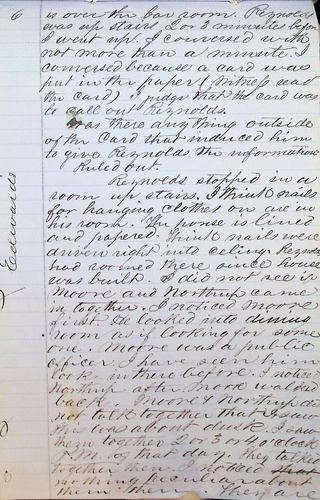 6
is over the bar room. Reynolds
was up stairs 2 or 3 minutes before
I went up. I conversed with
not more than a minute. I
conversed because a card was
put in the paper (witness read
the card) I judge that the card was
to call out Reynolds.
Was there anything outside
of the Card that induced him
to give Reynolds the information
Ruled out.
Reynolds stopped in a
room up stairs. I think nails
for hanging clothes on are in
his room. The house is lined
and papered. Think nails were
driven right into ceiling Reynolds
had roomed there since house
was built. I did not see it
Moore and Northup came
in together. I noticed Moore
first. He looked into dining
room as if looking for some
one. Moore was a public
officer I have seen him
in there before. I notice
Northup after Moore walked
back. Moore & Northup did
not talk together that I saw
this was about dusk. I saw
them together 2 or 3 or 4 o'clock
P.M. of that day. they talked
together then. I noticed
nothing peculiar about
them then. They are
Edwards